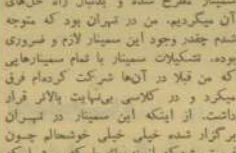 سمینار مطرح شده و بدنبال راه حل‌های
آن میگردیم. من در تهران بود که متوجه
شدم چقدر وجود این سمینار لازم و ضروری
بوده. تشکیلات سمینار با تمام سمینارهایی
که من قبلا در آن‌ها شرکت کرده‌ام فرق
میکرد و در کلاسی بی‌نهایت بالاتر قرار
داشت. از اینکه این سمینار در تهران
برگزار شده خیلی خیلی خوشحالم چون